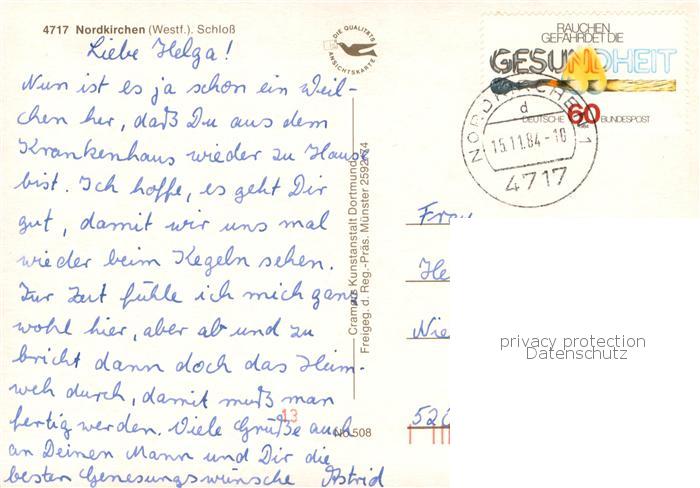 4717 Nordkirchen (Westf.). Schloß
Liebe Helga!
Nun ist es ja schon ein Weil-
chen her, daß Du aus dem
Krankenhaus wieder zu Hause
bist. Ich hoffe, es geht Dir
gut, damit wir uns mal
wieder beim Kegeln sehen.
Zur Zeit fühle ich mich ganz
wohl hier, aber ab und zu
bricht dann doch das Heim-
weh durch, damit muß man
fertig werden. Viele Grüße auch
an Deinen Mann und Dir die
besten Genesungswünsche Astrid
DIE QUALITÄTS
ANSICHTSKARTE
Cramers Kunstanstalt Dortmund
Freigeg. d. Reg.-Präs. Münster 2592/74
No 508
13
RAUCHEN
GEFÄHRDET DIE
GESUNDHEIT
DEUTSCHE BUNDESPOST
60
NORDKIRCHEN 1
d
15.11.84-10
4717
Frau
He
Nie
520
privacy protection
Datenschutz